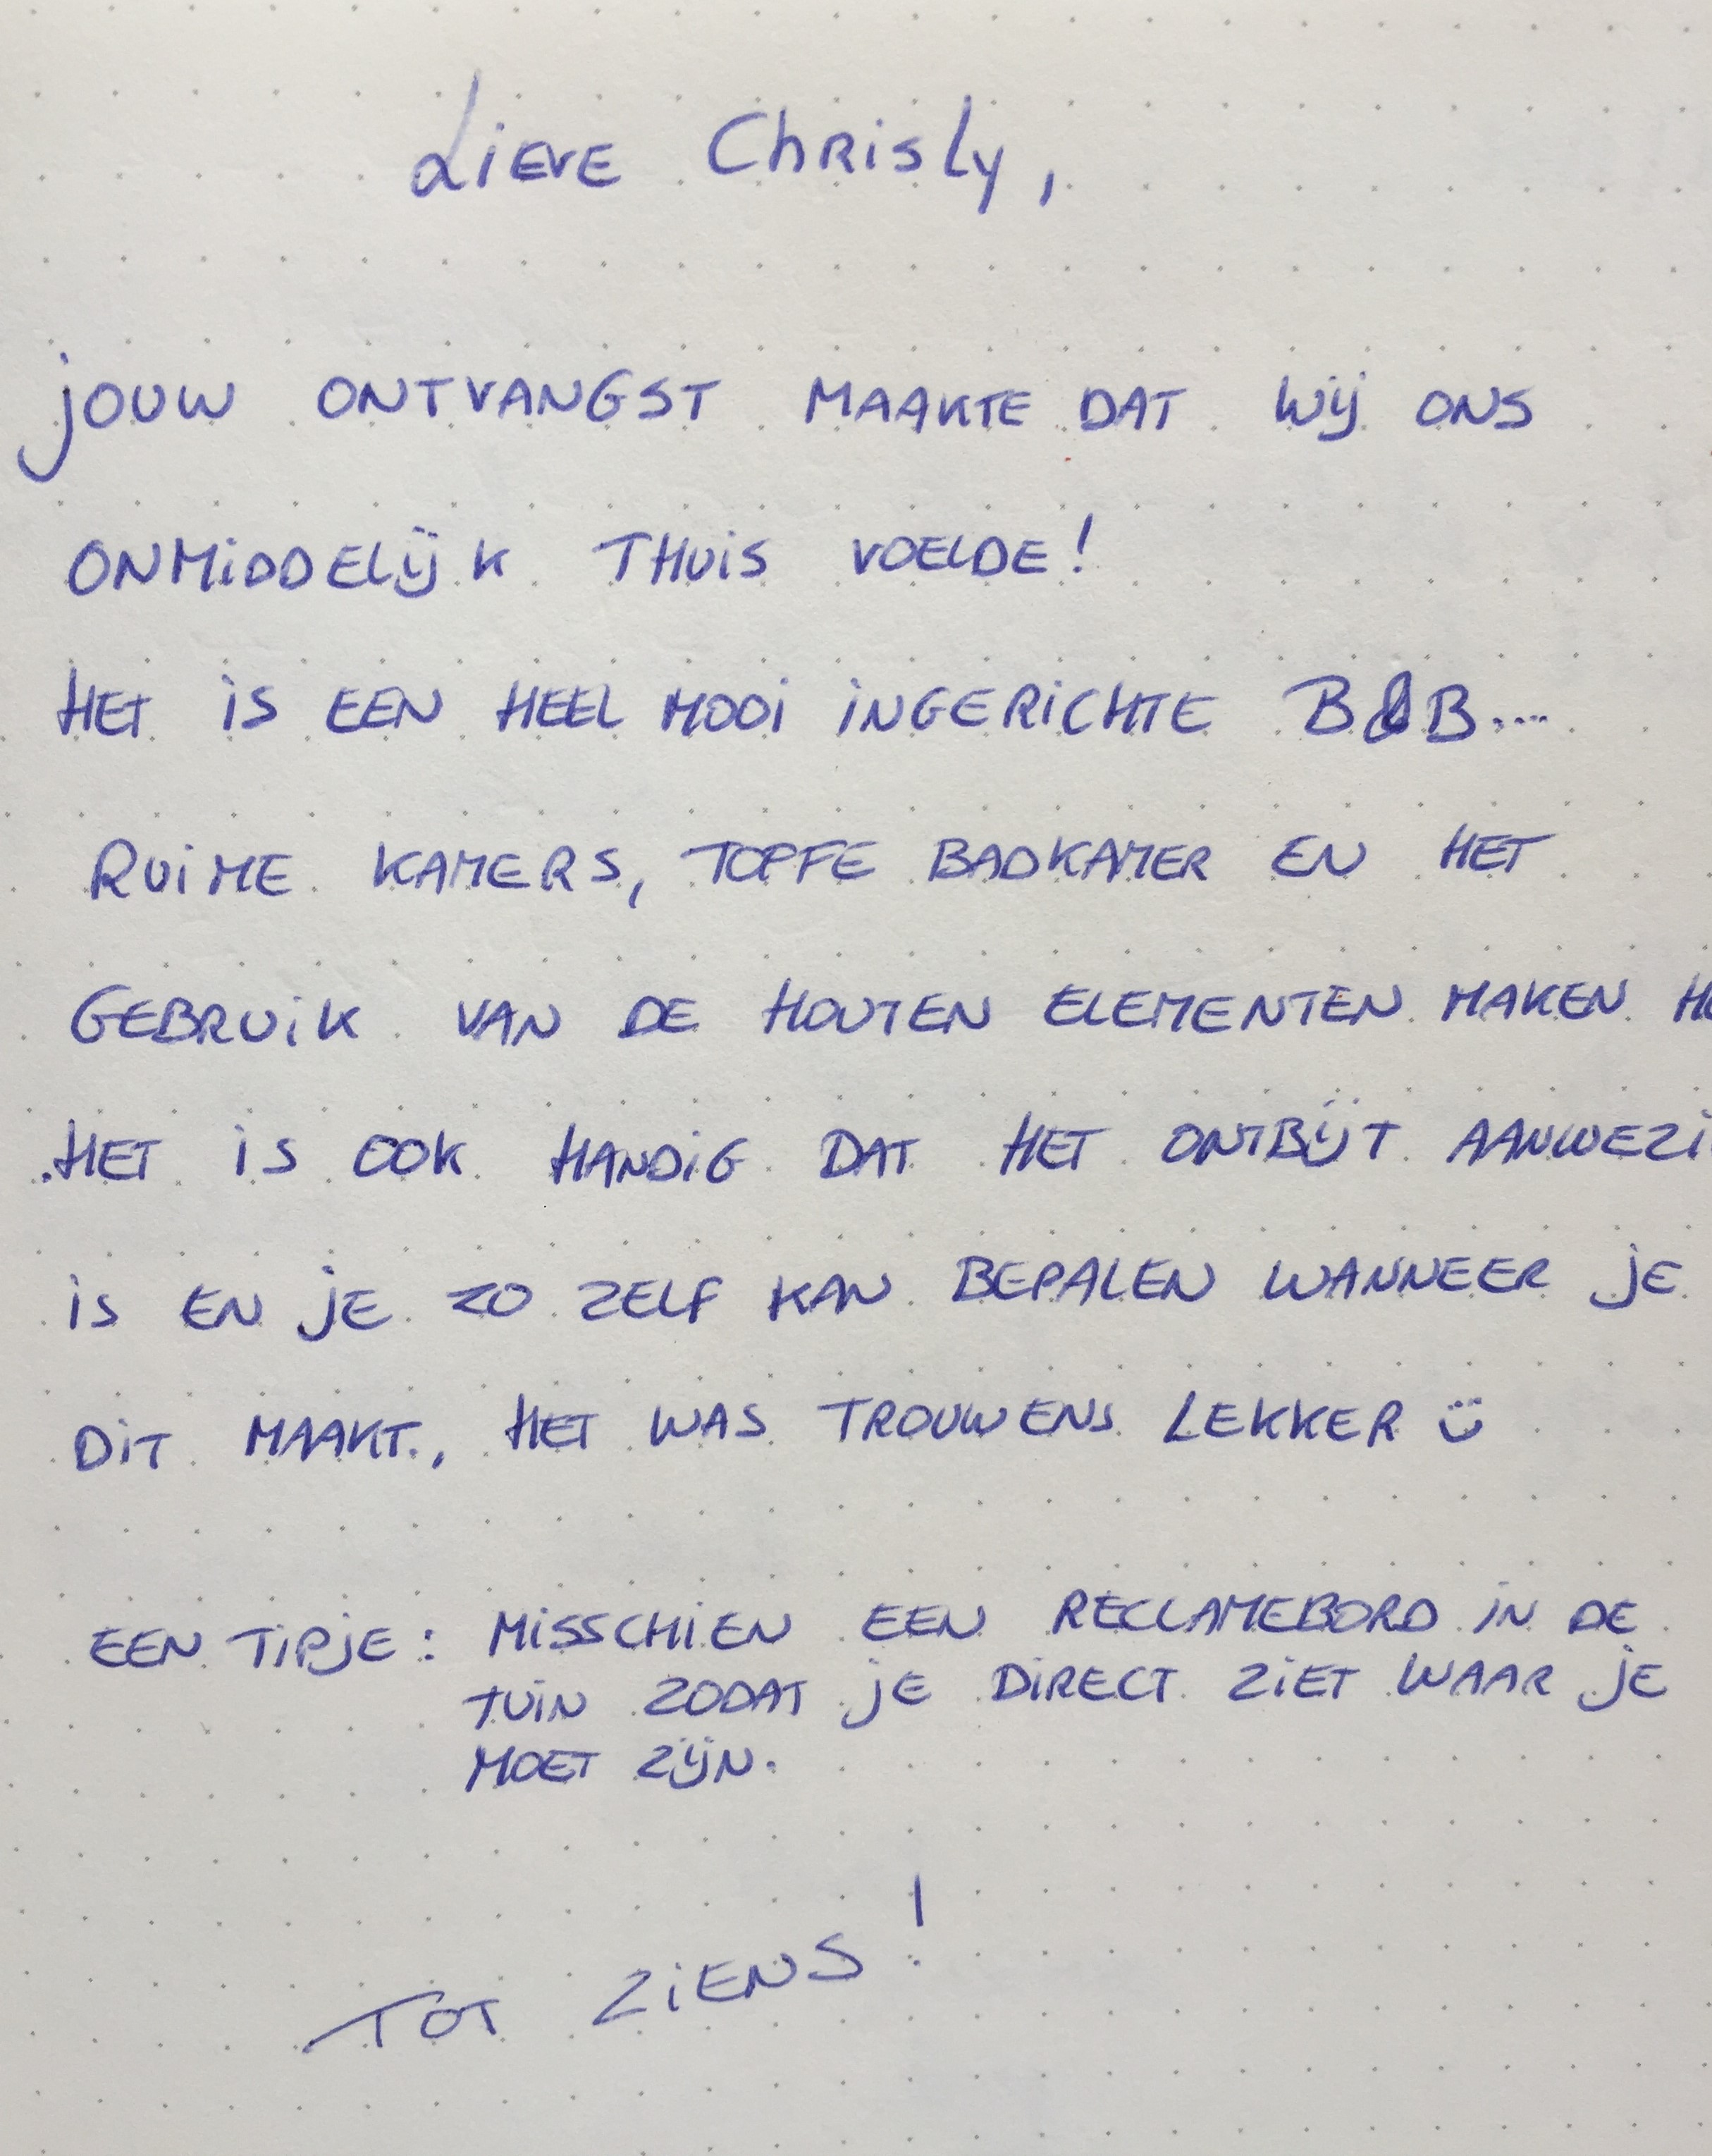 Lieve Chrisly,
jOUW ONTVANGST MAAKTE DAT WIJ ONS
ONMIDDELIJK THUIS VOELDE!
HET IS EEN HEEL MOOI INGERICHTE B&B....
RUIME KAMERS, TOFFE BADKAMER EN HET
GEBRUIK VAN DE HOUTEN ELEMENTEN MAKEN
HET IS OOK HANDIG DAT HET ONTBIJT
IS EN jE ZO ZELF KAN BEPALEN WANNEER jE
DIT MAAKT., HET WAS TROUWENS LEKKER ☺
EEN TIPjE: MISSCHIEN EEN RECLAMEBORD IN DE
TUIN ZODAT jE DIRECT ZIET WAAR jE
MOET ZIJN.
TOT ZIENS!